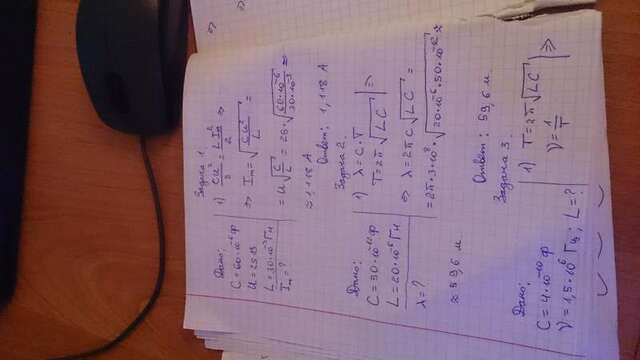 Задача 1.
Дано:
C = 60·10⁻⁶ Ф
U = 25 В
L = 30·10⁻³ Гн
Iₘ = ?
1) CU²/2 = LIₘ²/2 ⇒
⇒ Iₘ = √(CU²/L) =
= U√(C/L) = 25·√(60·10⁻⁶/30·10⁻³) ≈
≈ 1,118 А
Ответ: 1,118 А
Задача 2.
Дано:
C = 50·10⁻¹² Ф
L = 20·10⁻⁶ Гн
λ = ?
1) λ = c·T
T = 2π√(LC) | ⇒
⇒ λ = 2πc√(LC) =
= 2π·3·10⁸·√(20·10⁻⁶·50·10⁻¹²) ≈
≈ 59,6 м
Ответ: 59,6 м.
Задача 3.
Дано:
C = 4·10⁻¹⁰ Ф
ν = 1,5·10⁶ Гц; L = ?
1) T = 2π√(LC)
ν = 1/T | ⇒